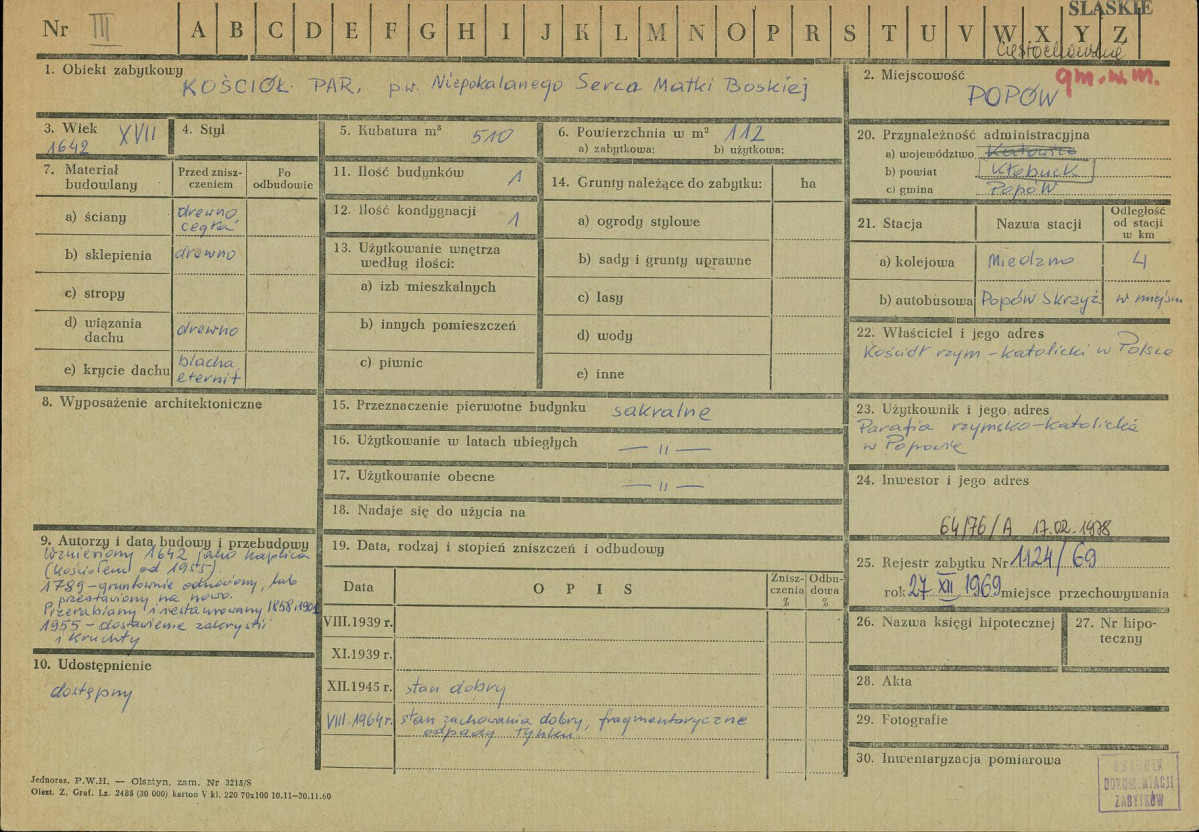 Nr III A B C D E F G H I J K L M N O P R S T U V W X Y Z
ŚLĄSKIE
częstochowskie
1. Obiekt zabytkowy
KOŚCIÓŁ PAR. p.w. Niepokalanego Serca Matki Boskiej
2. Miejscowość
gm. w m.
POPÓW
3. Wiek XVII
1642
4. Styl
5. Kubatura m³ 510
6. Powierzchnia w m² 112
a) zabytkowa: b) użytkowa:
20. Przynależność administracyjna
a) województwo Katowice
b) powiat Kłobuck
c) gmina Popów
7. Materiał budowlany
Przed znisz-
czeniem
Po
odbudowie
a) ściany drewno,
cegła
b) sklepienia drewno
c) stropy
d) wiązania
dachu drewno
e) krycie dachu blacha
eternit
11. Ilość budynków 1
12. Ilość kondygnacji 1
13. Użytkowanie wnętrza
według ilości:
a) izb mieszkalnych
b) innych pomieszczeń
c) piwnic
14. Grunty należące do zabytku: ha
a) ogrody stylowe
b) sady i grunty uprawne
c) lasy
d) wody
e) inne
21. Stacja Nazwa stacji
Odległość
od stacji
w km
a) kolejowa Miedzno 4
b) autobusowa Popów Skrzyż. w miejscu
22. Właściciel i jego adres
Kościół rzym.-katolicki w Polsce
8. Wyposażenie architektoniczne
15. Przeznaczenie pierwotne budynku sakralne
16. Użytkowanie w latach ubiegłych — " —
17. Użytkowanie obecne — " —
18. Nadaje się do użycia na
23. Użytkownik i jego adres
Parafia rzymsko-katolicka
w Popowie
24. Inwestor i jego adres
64/76/A 17.02.1978
9. Autorzy i data budowy i przebudowy
Wzniesiony 1642 jako kaplica
(kościołem od 1955).
1789 – gruntownie odnowiony, lub
przestawiony na nowo.
Przerabiany i restaurowany 1858, 1901
1955 – dostawienie zakrystii
i kruchty
10. Udostępnienie
dostępny
19. Data, rodzaj i stopień zniszczeń i odbudowy
Data O P I S
Znisz-
czenia
%
Odbu-
dowa
%
VIII.1939 r.
XI.1939 r.
XII.1945 r. stan dobry
VIII.1964 r. stan zachowania dobry, fragmentaryczne
odpady tynku
25. Rejestr zabytku Nr 1124/69
rok 27 XII 1969 miejsce przechowywania
26. Nazwa księgi hipotecznej
27. Nr hipo-
teczny
28. Akta
29. Fotografie
30. Inwentaryzacja pomiarowa
OŚRODEK
DOKUMENTACJI
ZABYTKÓW
Jednoraz. P.W.H. — Olsztyn, zam. Nr 3215/S
Olszt. Z. Graf. Lz. 2485 (30 000) karton V kl. 220 70x100 10.11—30.11.60